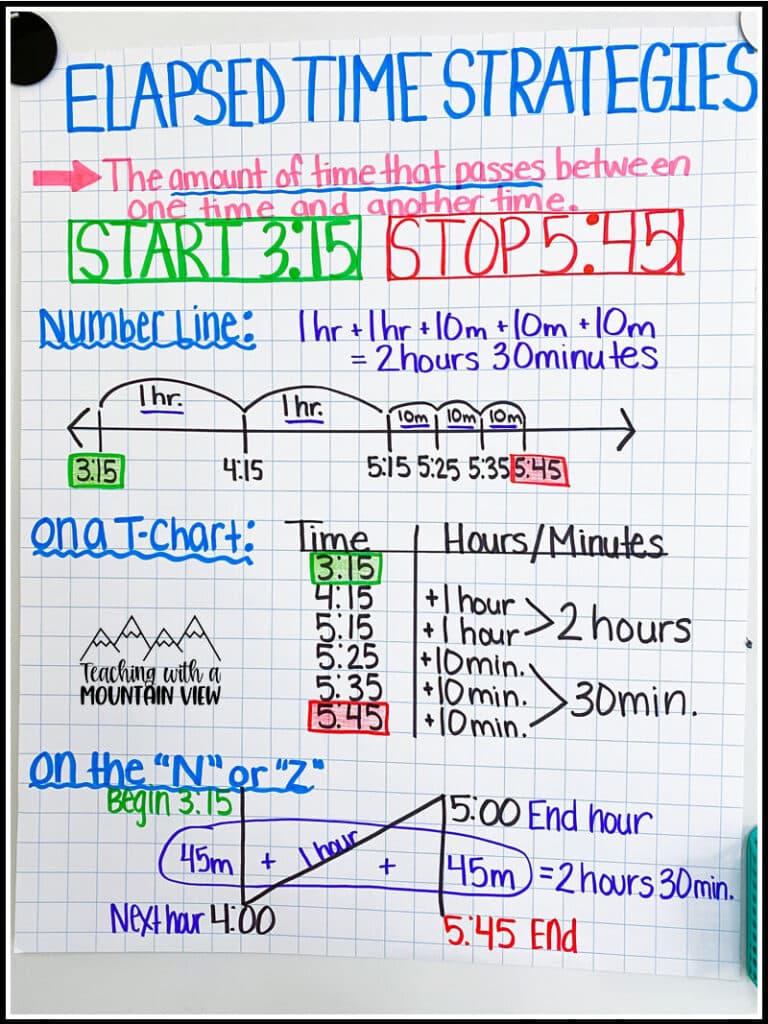 ELAPSED TIME STRATEGIES
The amount of time that passes between
one time and another time.
START 3:15 STOP 5:45
Number Line: 1hr + 1hr + 10m + 10m + 10m
= 2hours 30minutes
1hr. 1hr. 10m 10m 10m
3:15 4:15 5:15 5:25 5:35 5:45
on a T-Chart: Time Hours/Minutes
3:15
4:15 +1 hour
5:15 +1 hour > 2 hours
5:25 +10min.
5:35 +10min. > 30min.
5:45 +10min.
Teaching with a
MOUNTAIN VIEW
on the "N" or "Z"
Begin 3:15 5:00 End hour
45m + 1 hour + 45m = 2hours 30min.
Next hour 4:00 5:45 End